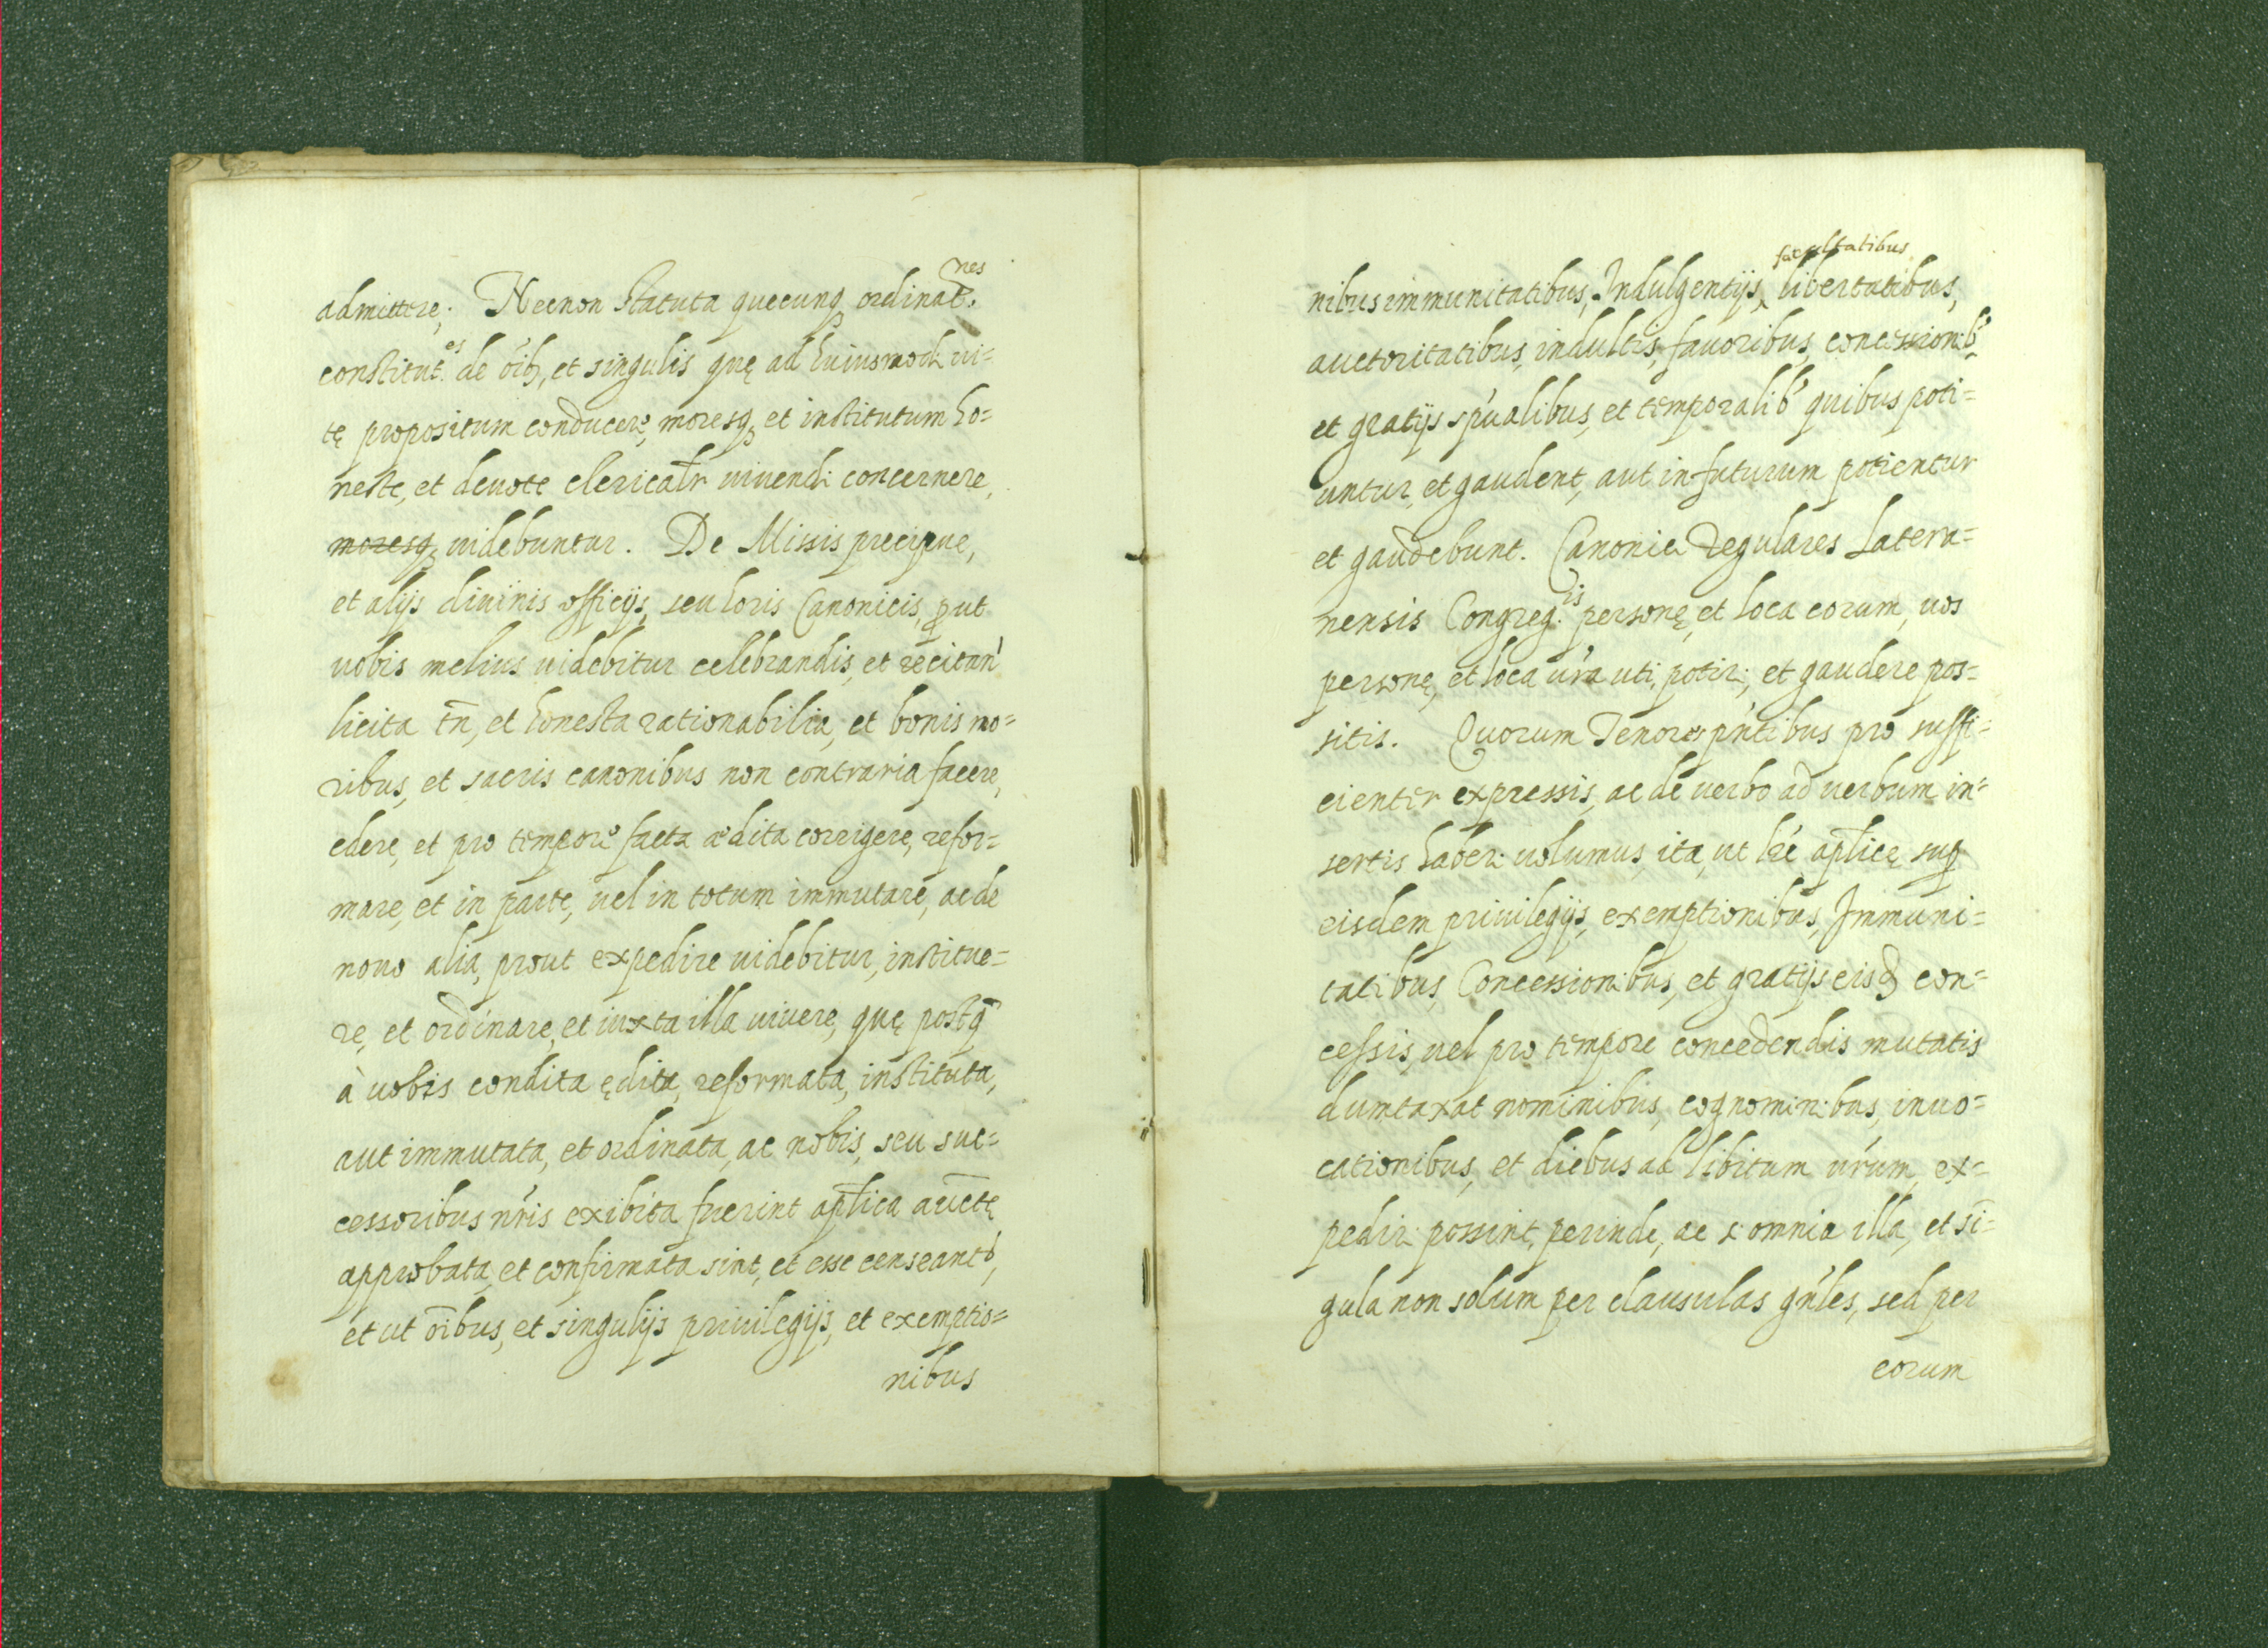 admittere; Necnon statuta quecunqꝫ ordinat.nes
constitut.es de oib, et singulis quę ad huiusmodi ui=
tę propositum conducere, moresqꝫ et institutum ho=
neste, et deuote clericalr uiuendi concernere,
moresqꝫ uidebuntur. De Missis precipue,
et alijs diuinis officijs, seu horis Canonicis, ꝓut
uobis melius uidebitur celebrandis, et recitan
licita tn̄, et honesta rationabilia, et bonis mo=
ribus, et sacris canonibus non contraria facere,
edere, et pro tempore facta ædita corrigere, refor=
mare, et in parte, uel in totum immutare, ac de
nouo alia, prout expedire uidebitur, institue=
re, et ordinare, et iuxta illa uiuere, quę postq̄
à uobis condita ędita, reformata, instituta,
aut immutata, et ordinata, ac nobis, seu suc=
cessoribus nr̄is exibita fuerint apl̄ica auctē
approbata, et confirmata sint, et esse censeant,
et ut oībus, et singulijs priuilegijs, et exemptio=
nibus
facultatibus
nibus immunitatibus, Indulgentijs, libertatibus,
auctoritatibus, indultis, fauoribus, concessionib
et gratijs sp̄ualibus, et temporalib quibus poti=
untur, et gaudent, aut in futurum potientur
et gaudebunt. Canonici Regulares Latera=
nensis Congreg.is personę, et loca eorum, uos
personę, et loca ur̄a uti, potiri, et gaudere pos=
sitis. Quorum Tenores pn̄tibus pro suffi=
cienter expressis, ac de uerbo ad uerbum in=
sertis haberi uolumus, ita, ut lr̄e apl̄icę suꝑ
eisdem priuilegijs, exemptionibus, Immuni=
tatibus, Concessionibus, et gratijs eisd con=
cessis, uel pro tempore concedendis mutatis
dumtaxat nominibus, cognominibus, inuo=
cationibus, et diebus ad libitum ur̄um, ex=
pediri possint, perinde, ac si omnia illa, et sī=
gula non solum per clausulas gn̄les, sed per
eorum